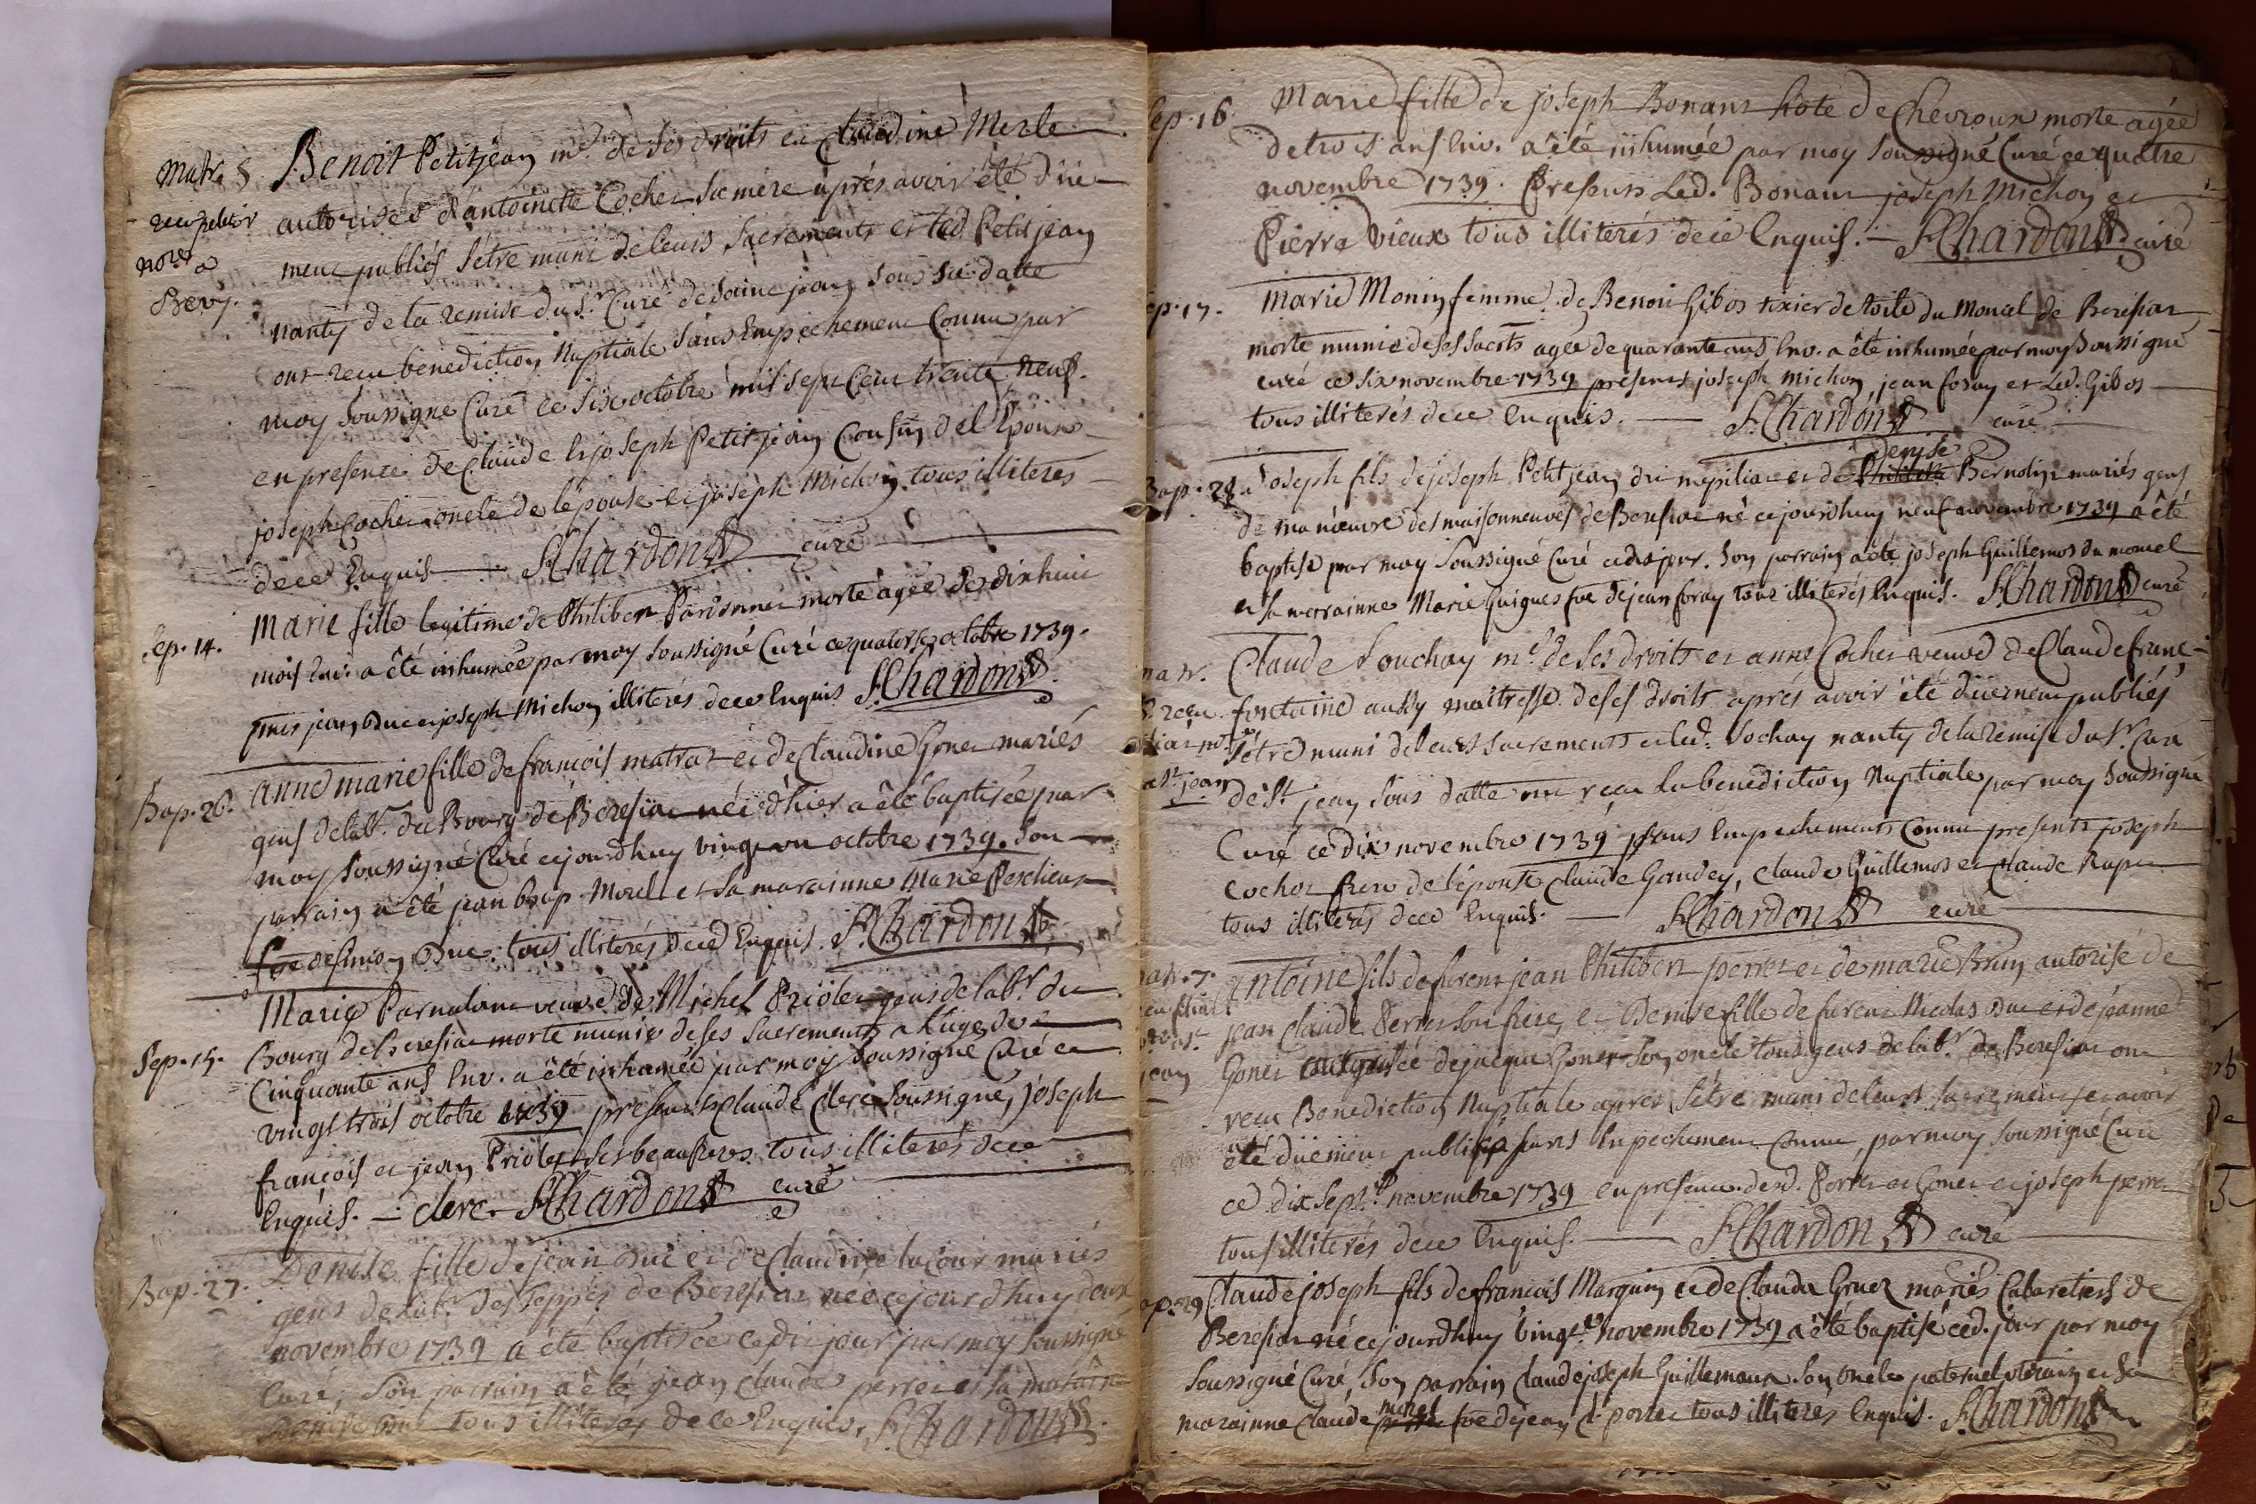 Matr. 5.
recu petitoir
Benoit Petitjean m.e de ses droits et Claudine Merle
autorisée d'antoinette Cocher sa mere aprés avoir été düe-
ment publiés s'etre muni de leurs sacrements et led Petitjean
nanty de la remise du s.r Curé de saint jean sous sa datte
ont recu benediction Nuptiale sans Empechement Connu par
moy soussigné Curé ce six octobre mil sept Cent trente neuf.
en presence de Claude et joseph Petitjean Cousin de l'Epoux
joseph Cocher oncle de l'epouse et joseph Michon tous illiterés
de ce Enquis F. Chardon curé
Sep. 14.
Marie fille legitime de Philibert morte agée de dix huit
mois Env. a été inhumée par moy soussigné Curé ce quatorse octobre 1739.
pnts jean Duc et joseph Michon illiterés de ce Enquis F. Chardon
Bap. 26.
anne marie fille de francois matrat et de Claudine Goner mariés
gens de lab.r du Bourg de Beresiat née d'hier a été baptisée par
moy soussigné Curé cejourdhuy vingt un octobre 1739. son
parrain a été jean bap. Morel et sa marainne Marie
fe de simon Duc. tous illiterés de ce Enquis. F. Chardon
Sep. 15.
Marie veuve de Michel Prioler gens de lab.r du
Bourg de beresiat morte munie de ses sacrements a l'age de
Cinquante ans Env. a été inhumée par moy soussigné Curé ce
vingt trois octobre 1739 presents Claude Clerc soussigné, joseph
françois et jean Prioler ses beaufreres tous illiterés de ce
Enquis. — clerc F. Chardon curé
Bap. 27.
Denise fille de jean Duc et de Claudine lacour mariés
gens de lab.r des de Beresiat née cejourdhuy deux
novembre 1739 a été baptisée cedit jour par moy soussigné
Curé, son parrain a été jean claude perrer et sa marainne
Denise Duc tous illiterés de ce Enquis. F. Chardon
Sep. 16.
Marie fille de joseph Bonant hote de Chevroux morte agée
de trois ans Env. a été inhumée par moy soussigné Curé ce quatre
novembre 1739. Presents Led. Bonant joseph Michon et
Pierre Vieux tous illiterés de ce Enquis. — F. Chardon curé
ep. 17.
Marie Monin femme de Benoit Gibos tixier de toile du Moncel de Beresiat
morte munie de ses sacrts agée de quarante ans Env. a été inhumée par moy soussigné
curé ce six novembre 1739 presents joseph michon jean foray et Led. Gibos
tous illiterés de ce Enquis. — F. Chardon curé
Bap. 28.
denise
Joseph fils de joseph Petitjean du et de Bernolin mariés gens
de manoeuvre des maisonneuves de Beresiat né cejourdhuy neuf novembre 1739 a été
baptisé par moy soussigné Curé cedit jour. son parrain a été joseph Guillemos du moncel
et sa marainne Marie Guigues fe de jean foray tous illiterés Enquis. F. Chardon curé
Claude Souchay m.e de ses droits et anne Cocher veuve de Claude franc.
fontaine aussy maitresse de ses droits aprés avoir été düement publiés
s'etre muni de leurs sacrements et led. Sochay nanty de la remise du s.r Curé
a St jean
de St. jean sous datte ont reçu la benediction Nuptiale par moy soussigné
Curé ce dix novembre 1739 sans Empechements Connu presents joseph
cocher frere de l'épouse Claude Gaudey, Claude Guillemos et Claude
tous illiterés de ce Enquis. — F. Chardon curé
antoine fils de furent jean Philibert perrer et de marie Brun autorisé de
jean Claude Perrer son frere, et Denise fille de furent Nicolas Duc et de jeanne
jean
Goner autorisée de jacque Goner son oncle tous gens de lab.r de Beresiat ont
recu Benediction Nuptiale aprés s'etre muni de leurs sacrements et avoir
été düement publiés sans Enpechement Connu, par moy soussigné Curé
ce dix sept novembre 1739 en presence desd. Perrer et Goner et joseph perrer
tous illiterés de ce Enquis. — F. Chardon curé
ap. 29
Claude joseph fils de francois Marguin et de Clauda Goner mariés Cabaretiers de
Beresiat né cejourdhuy vingt novembre 1739 a été baptisé ced. jour par moy
soussigné Curé, son parrain Claude joseph Guillemaux son oncle paternel uterain et sa
morel
marainne Claude fe de jean C. perrer tous illiteres Enquis. F. Chardon